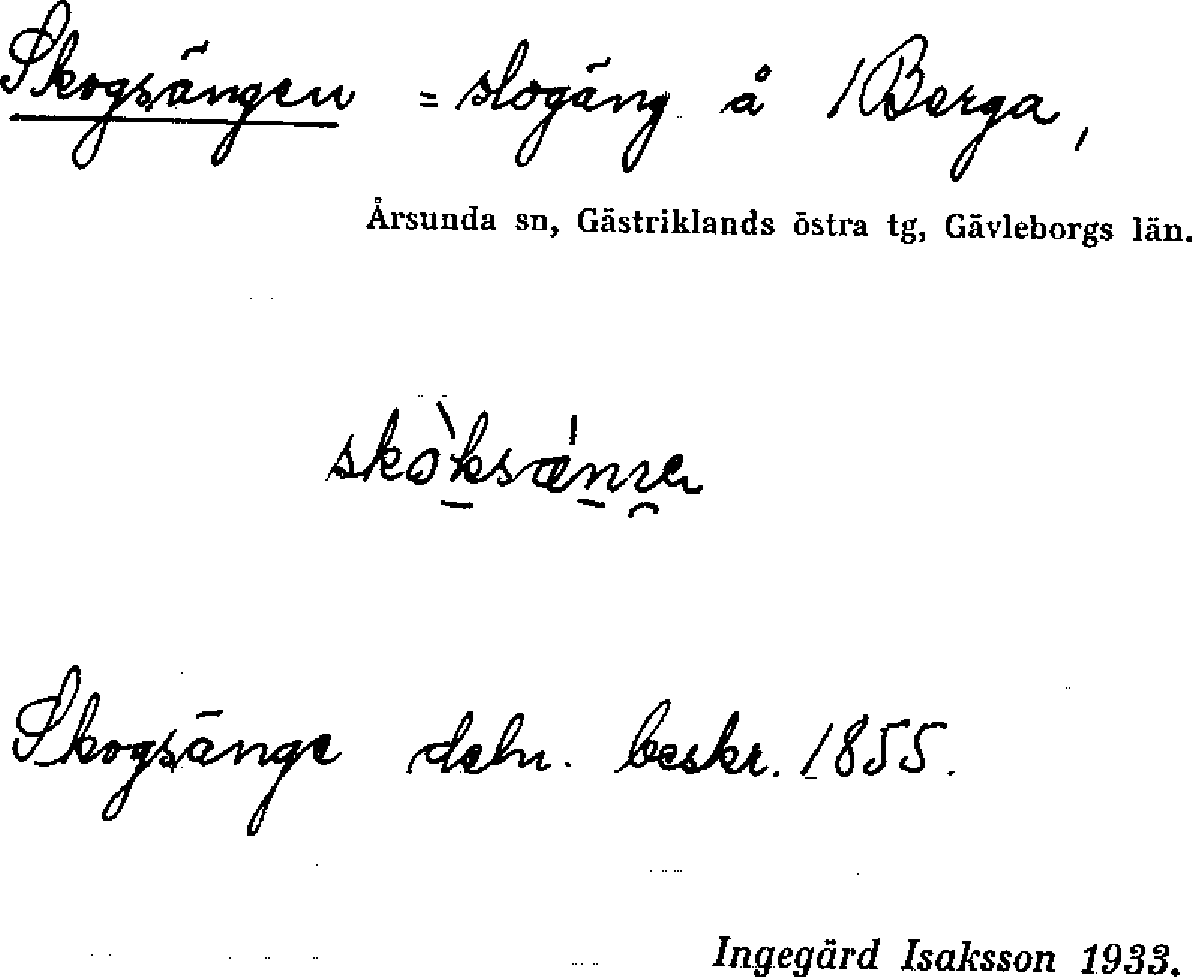 Skogsängen = slogäng å 1 Berga,
Årsunda sn, Gästriklands östra tg, Gävleborgs län.
Skogsänge deln. beskr. 1855.
Ingegärd Isaksson 1933.